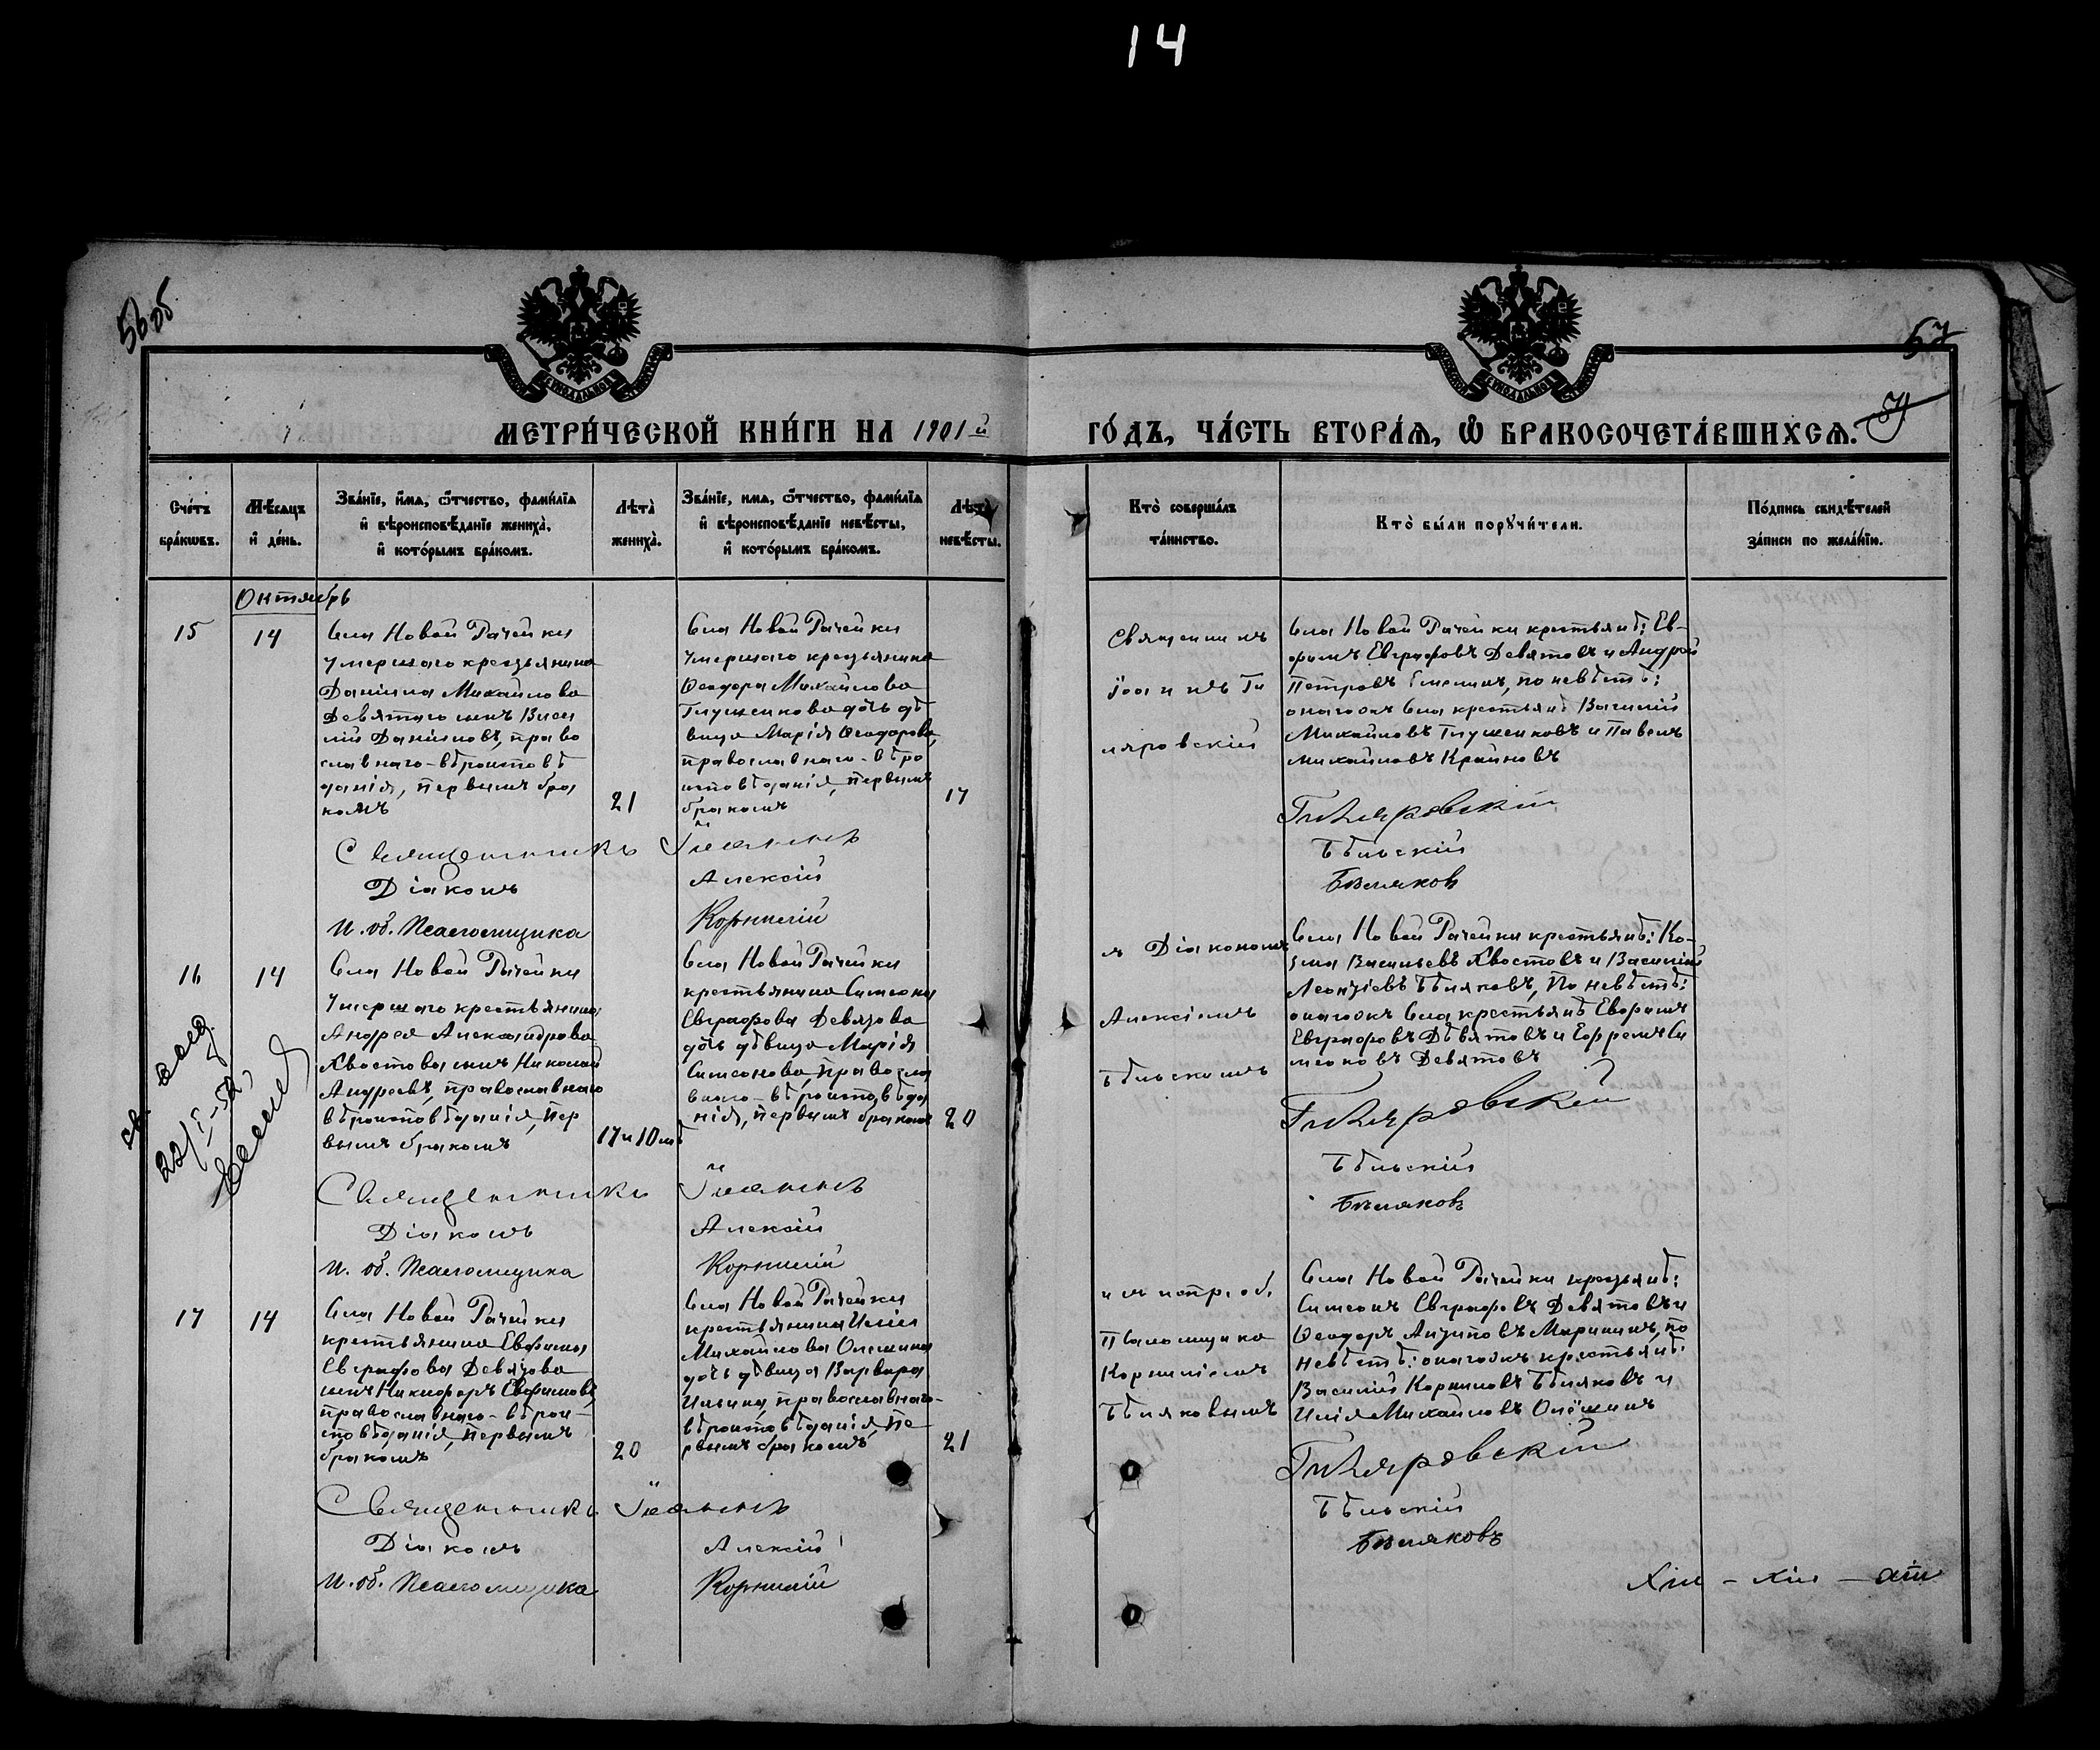 14
56 об
57
МЕТРИ́ЧЕСКОЙ КНИ́ГИ НА 1901й
ГО́ДЪ, ЧА́СТЬ ВТОРА́Ѧ, Ѿ БРАКОСОЧЕТА́ВШИХСѦ.
Сче́тъ
бра́кѡвъ.
Мѣ́сѧцъ
и҆ де́нь.
Зва́нїе, и҆́мѧ, ѻ҆́тчество, фами́лїѧ
и҆ вѣроисповѣ́данїе жениха̀,
и҆ кото́рымъ бра́комъ.
Лѣта̀
жениха̀.
Зва́нїе, имѧ, ѻ҆́тчество, фами́лїѧ
и҆ вѣроисповѣ́данїе невѣ́сты,
и҆ кото́рымъ бра́комъ.
Лѣта̀
невѣ́сты.
Кто̀ соверша́лъ
та́инство.
Кто̀ бы́ли порꙋчи́тели.
По́дпись свидѣ́телей
за́писи по жела́нїю.
Октябрь
15
14
Села Новой Рачейки
умершаго крестьянина
Даніила Михайлова
Девятаго сынъ Васи
лій Даніиловъ, право
славнаго-вѣроисповѣ
данія, первымъ бра
комъ
21
Села Новой Рачейки
умершаго крестьянина
Ѳеодора Михайлова
Глущенкова дочь дѣ
вица Марія Ѳеодорова,
православнаго-вѣро
исповѣданія, первымъ
бракомъ
17
Священникъ
Іоаннъ Ги
ляровскій
Села Новой Рачейки крестьянѣ: Ев-
фимъ Евграфовъ Девятовъ и Андрей
Петровъ, по невѣстѣ:
онагожъ села крестьянѣ Василій
Михайловъ Глущенковъ и Павелъ
Михайловъ Крайновъ
Священникъ Іоаннъ
Гиляровскій
Діаконъ Алексій
Бѣльскій
И. об. Псаломщика Корнилій
Бѣляковъ
16
14
Села Новой Рачейки
умершаго крестьянина
Андрея Александрова
Хвостова сынъ Николай
Андреевъ, православнаго
вѣроисповѣданія, пер
вымъ бракомъ
17 и 10 мѣ
Села Новой Рачейки
крестьянина Симеона
Евграфова Девятова
дочь дѣвица Марія
Симеонова, правосла
внаго-вѣроисповѣда
нія, первымъ бракомъ
20
съ Діакономъ
Алексіемъ
Бѣльскимъ
Села Новой Рачейки крестьянѣ: Ко-
зма Васильевъ Хвостовъ и Василій
Леонтіевъ Бѣляковъ, по невѣстѣ:
онагожъ села крестьянѣ Евфимъ
Евграфовъ Дѣвятовъ и Ефремъ Си
меоновъ Девятовъ
22/I-52,
Священникъ Іоаннъ
Гиляровскій
Діаконъ Алексій
Бѣльскій
И. об. Псаломщика Корнилій
Бѣляковъ
17
14
Села Новой Рачейки
крестьянина Евфима
Евграфова Девятова
сынъ Никифоръ Евфимовъ,
православнаго-вѣрои-
сповѣданія, первымъ
бракомъ
20
Села Новой Рачейки
крестьянина Иліи
Михайлова Олешина
дочь дѣвица Варвара
Ильина, православнаго-
вѣроисповѣданія, пе
рвымъ бракомъ
21
и испр. об.
Псаломщика
Корниліемъ
Бѣляковымъ
Села Новой Рачейки крестьянѣ:
Симеонъ Евграфовъ Девятовъ и
Ѳеодоръ Антиповъ Маришинъ, по
невѣстѣ: онагожъ крестьянѣ:
Василій Корниловъ Бѣляковъ и
Илія Михайловъ Олёшинъ
Священникъ Іоаннъ
Гиляровскій
Діаконъ Алексій
Бѣльскій
И. об. Псаломщика Корнилій
Бѣляковъ